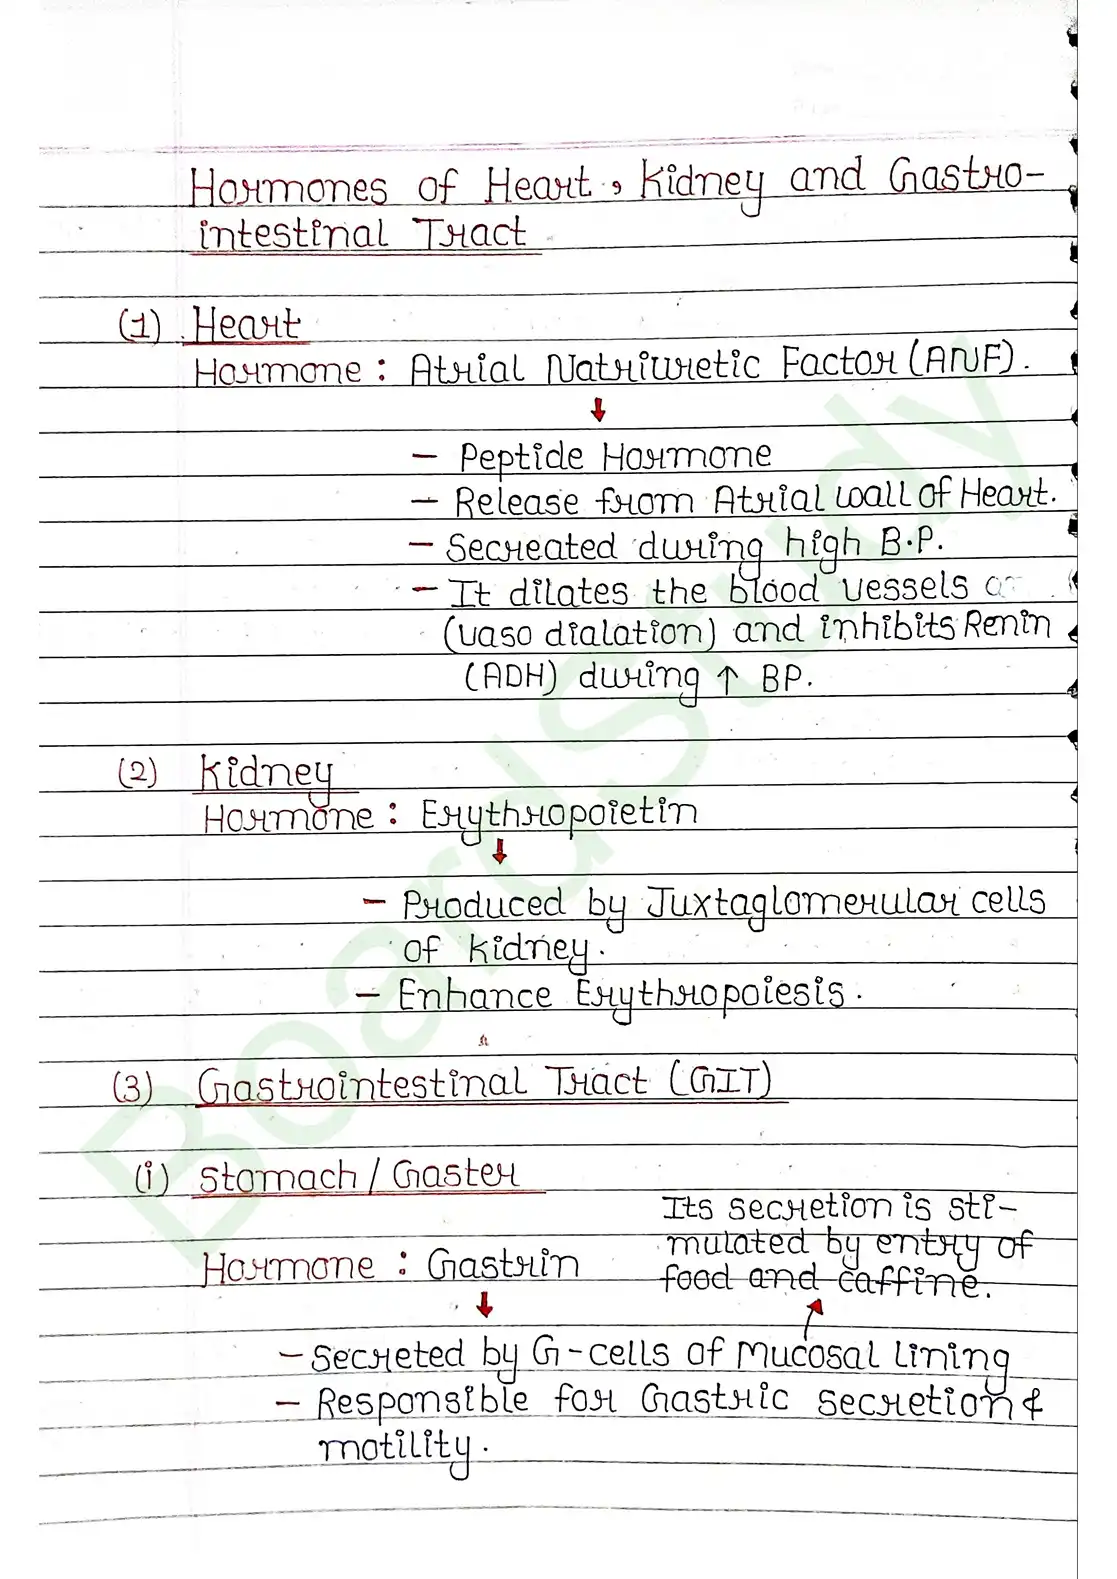 Hormones of Heart, Kidney and Gastro-
intestinal Tract
(1) Heart
Hormone : Atrial Natriuretic Factor (ANF).
↓
- Peptide Hormone
- Release from Atrial wall of Heart.
- Secreated during high B.P.
- It dilates the blood vessels
(vaso dialation) and inhibits Renin
(ADH) during ↑ BP.
(2) Kidney
Hormone : Erythropoietin
↓
- Produced by Juxtaglomerular cells
of kidney.
- Enhance Erythropoiesis.
(3) Gastrointestinal Tract (GIT)
(i) Stomach / Gaster
Its secretion is sti-
mulated by entry of
food and caffine.
Hormone : Gastrin
↓
- Secreted by G-cells of Mucosal Lining
- Responsible for Gastric secretion &
motility.
BoardStudy